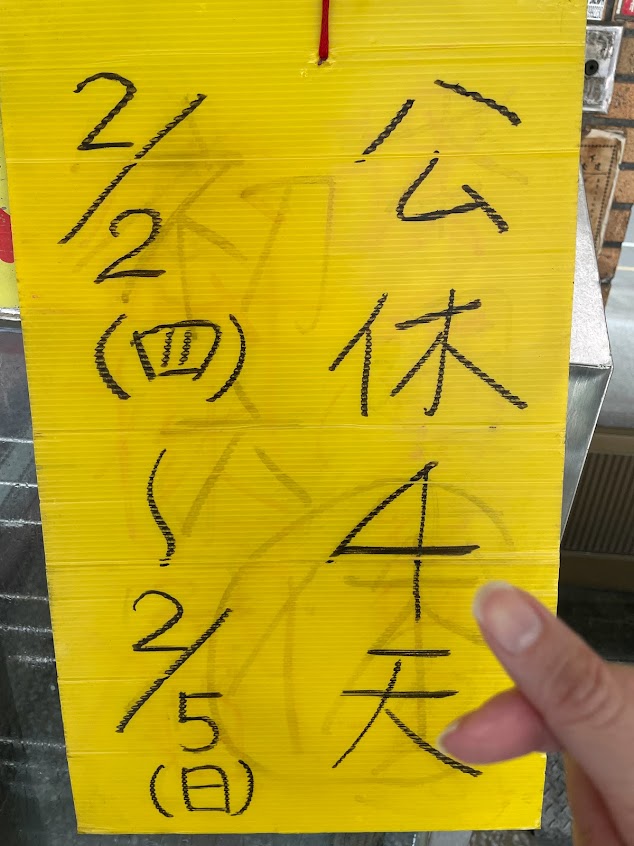 公休4天
2/2(四)~2/5(日)